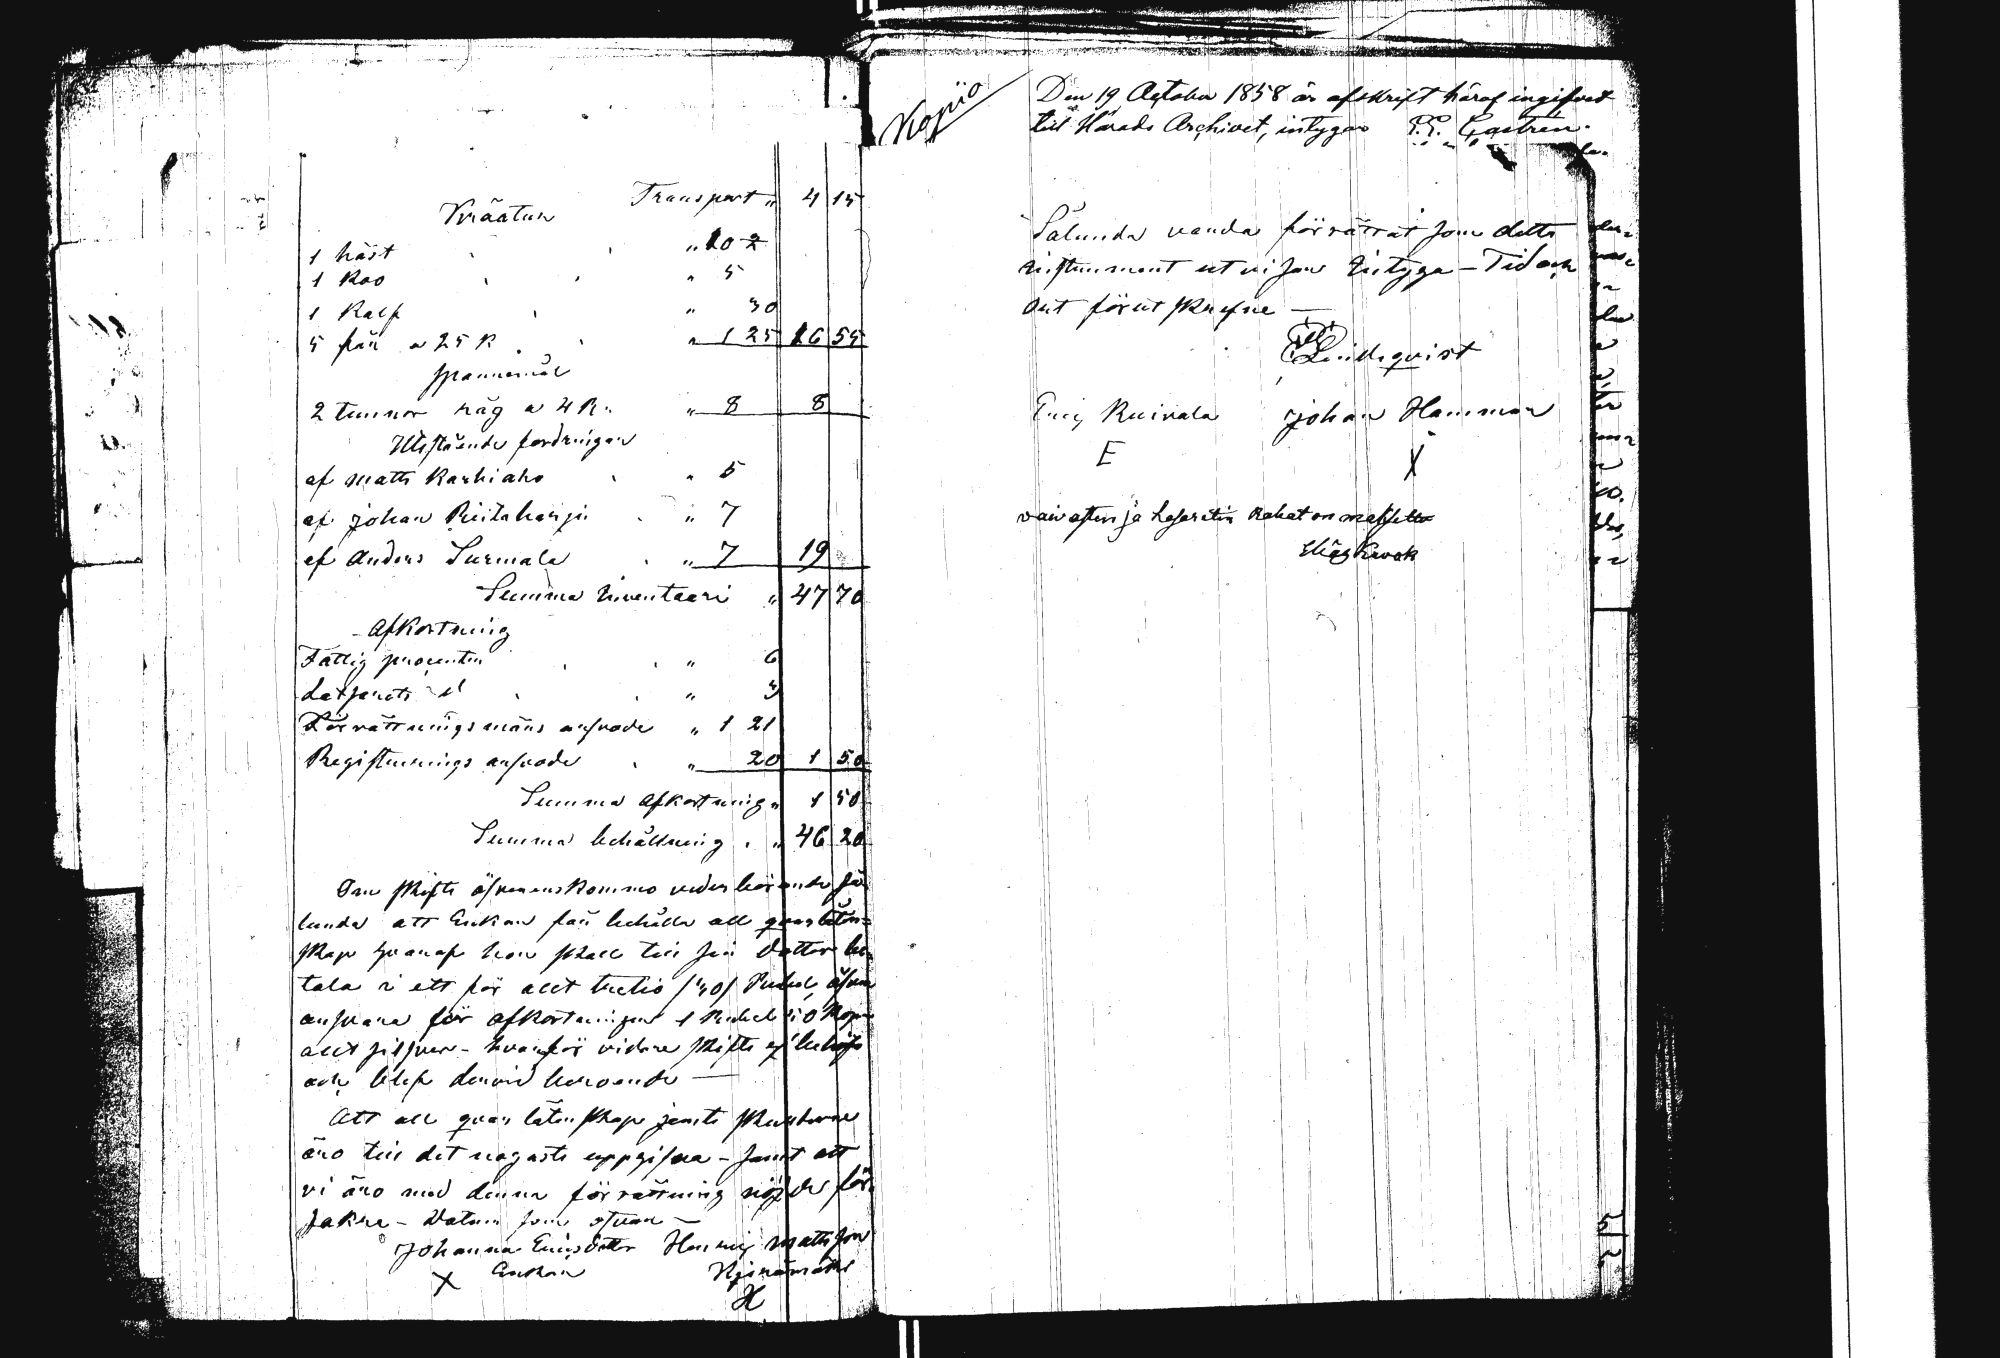 Transport " 4 15
Kräatur
1 häst " 10 2
1 koo " 5
1 kalf " 30
5 får a 25 K " 1 25 16 55
spannemål
2 tunnor råg a 4 R. " 8 8
Utestående fordringar
af Matts Karhiaho " 5
af Johan Riitaharju " 7
af Anders Surmala " 7 19
Summa Inventaari " 47 70
Afkortning
Fattig procenten " 6
Latsarets d " 3
Förrättningsmäns arfvode " 1 21
Registrerings arfvode " 20 1 50
Summa Afkortning " 1 50
Summa behållning " 46 20
Om skifte öfverenskommo vederbörande så
lunda att Enkan får behålla all qvarlåten=
skap hvaraf hon skall till sin dotter be
tala i ett för allt trettio /30/ Rubel, äfven
ansvara för afkortningen 1 Rubel 50 Kop
allt silfver - hvarför vidare skifte ej behöfs
och blef dervid beroende —
Att all qvarlåtenskap jemte skulderne
äro till det nogaste uppgifna - samt att
vi äro med denna förrättning nöjde för
säkra - Datum som ofvan —
Johanna Ericsdotter Henric Mattsson
X Enkan
H
Kopia
Den 19 October 1858 är afskrift häraf ingifvet
till Härads Archivet, intygar Castrén.
Sålunda vanda förrättat som detta
instrument utvisar Intyga - Tid och
Ort förutskrefne —
Lindqvist
Eric Ruikala Johan Hammar
E X
vaivasten ja lasaretin rahat on maksettu
Elias Krook